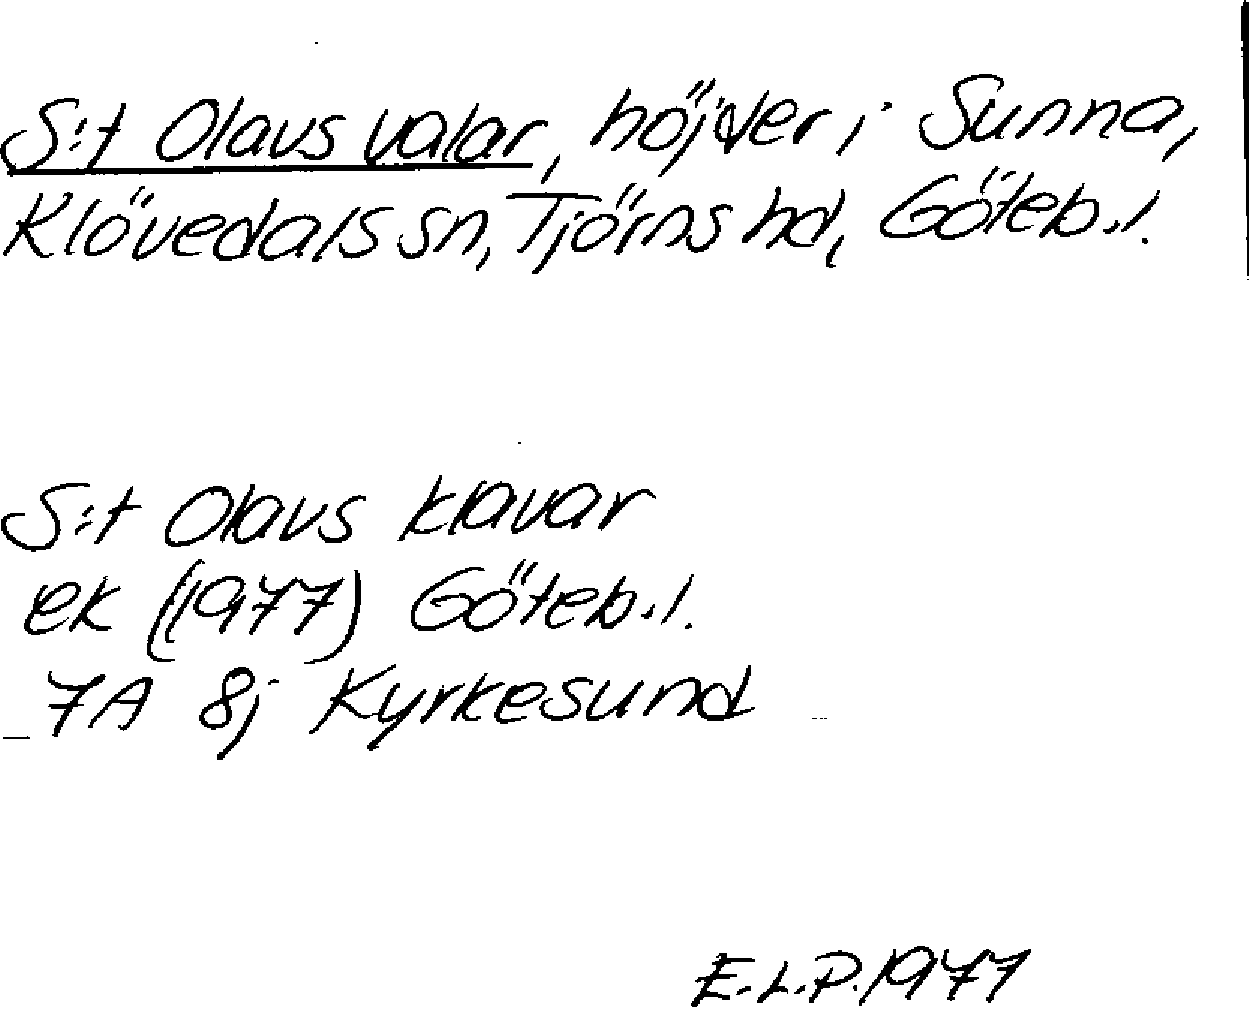 S:t Olavs valar, höjder i Sunna,
Klövedals sn, Tjörns hd, Göteb.l.
S:t Olavs klavar
ek (1977) Göteb.l.
7A 8j Kyrkesund
E.L.P. 1977